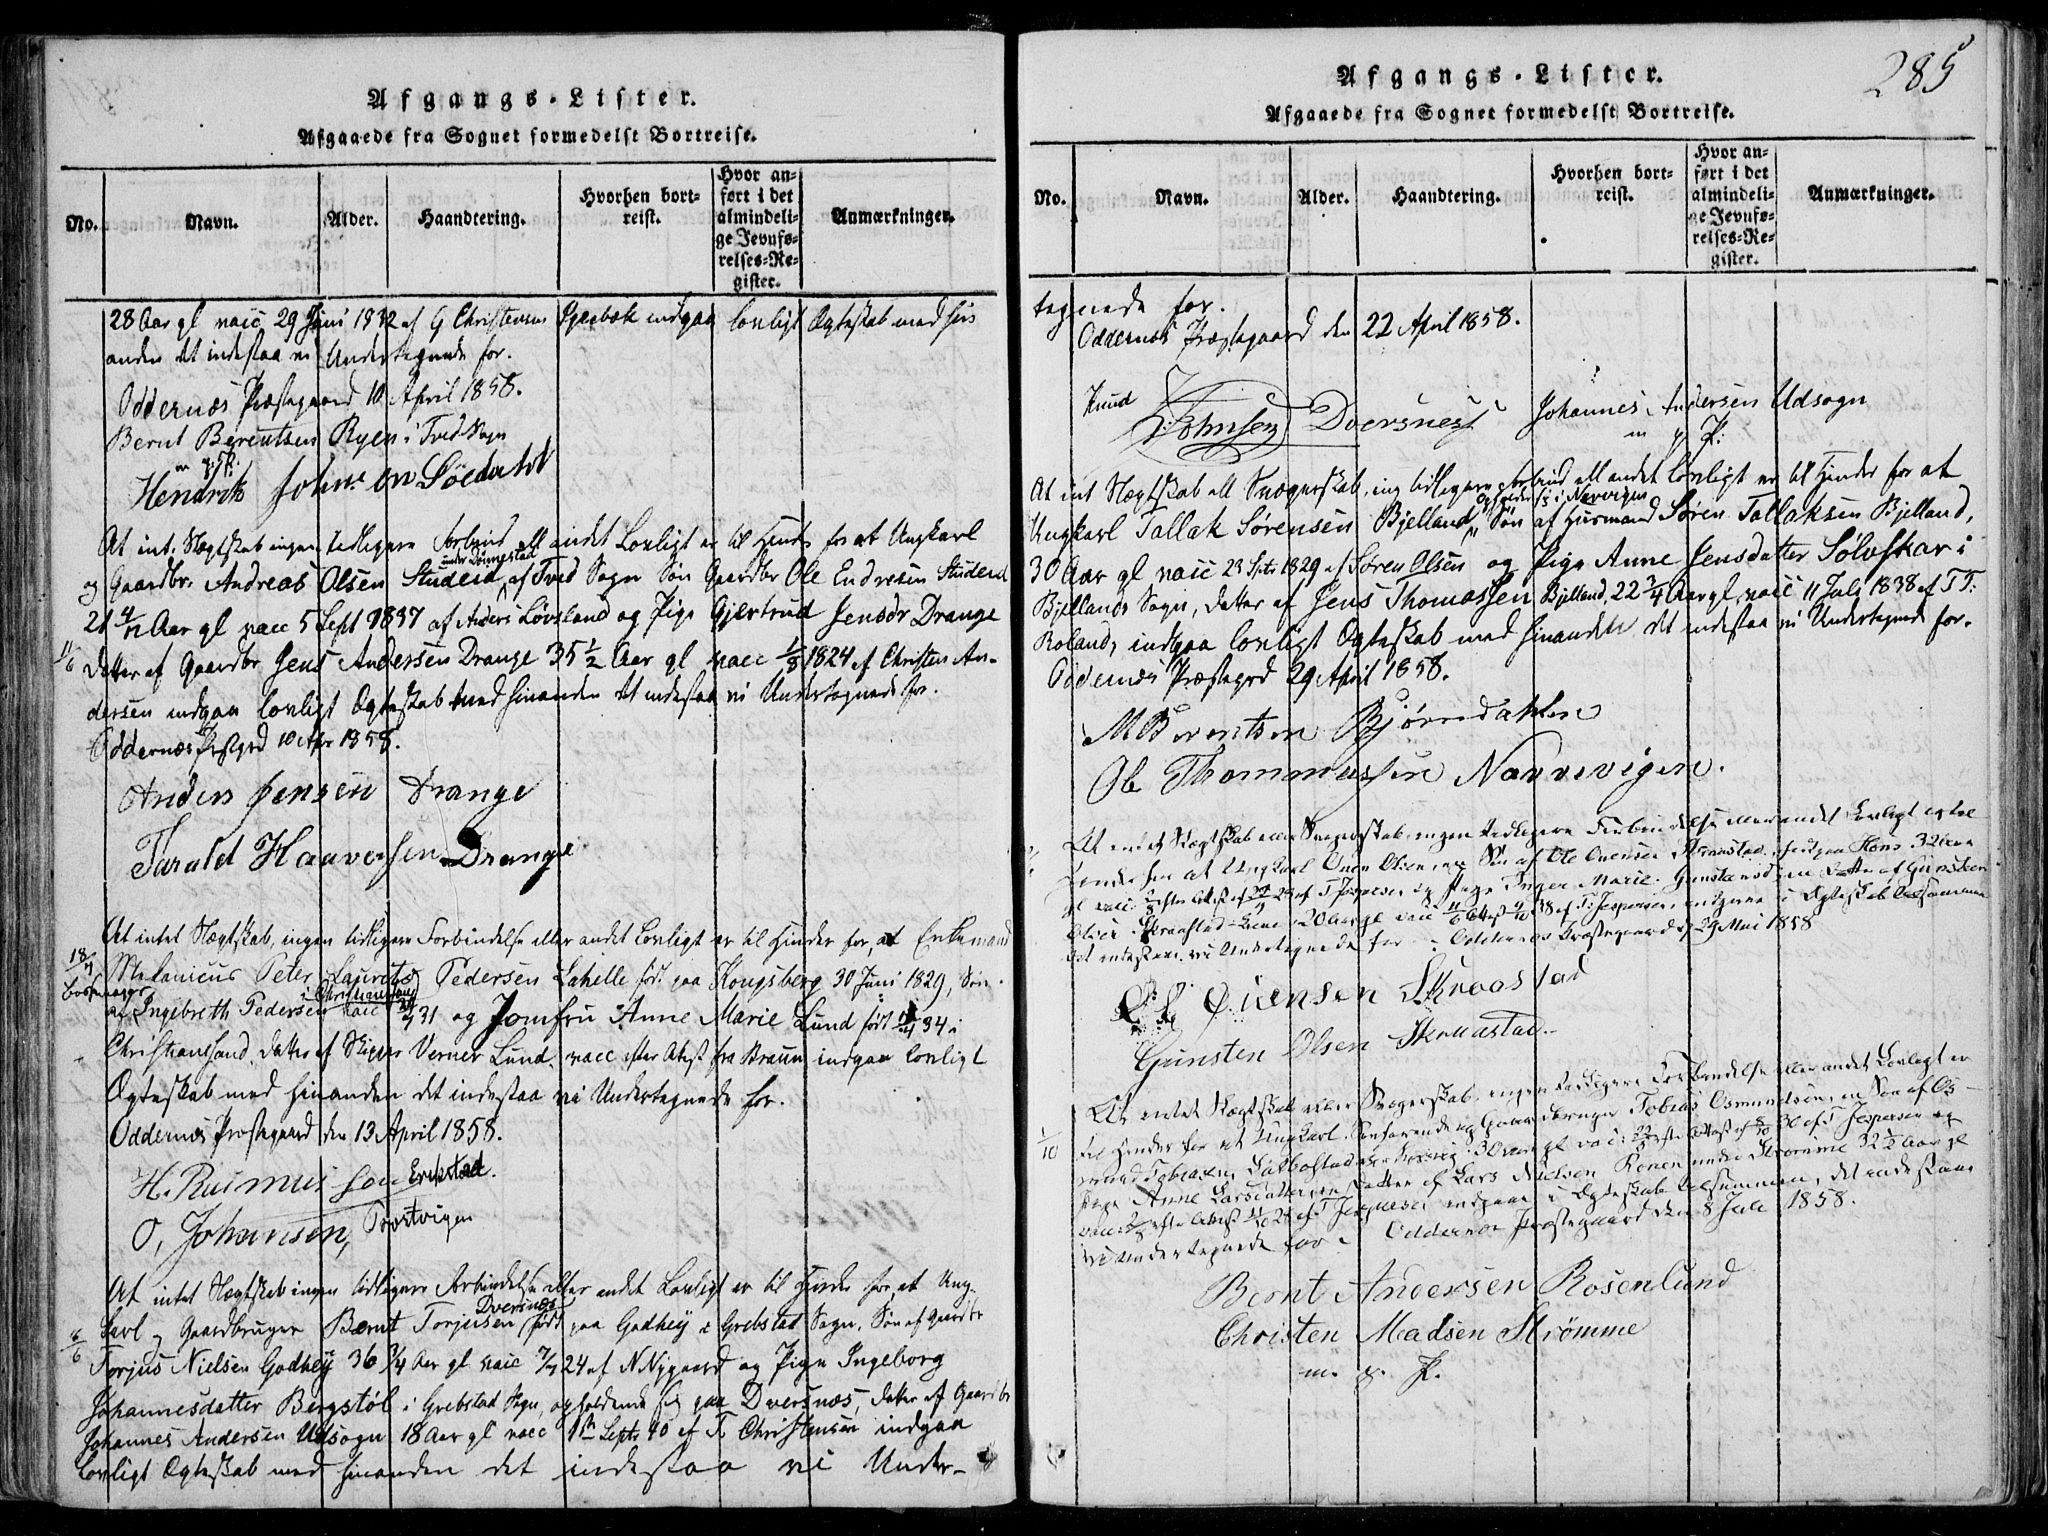 Afgangs-Lister.
Afgaaede fra Sognet formedelst Bortreise.
No.
Navn.
Alder.
Haandtering.
Hvorhen bort-
reist.
Hvor an-
ført i det
almindeli-
ge Jevnfø-
relses-Re-
gister.
Anmærkninger.
28 Aar gl vacc 29 Juni 1832 af G Christensen indgaa lovligt Ægteskab med hin
anden det indestaa vi Undertegnede for.
Oddernæs Præstegaard 10 April 1858.
Bernt Berentsen Ryen i Tveid Sogn
m. p. P.
Hendrik Johnsen Söedahl
At int. Slægtskab ingen tidligere Forbind ell andet Lovligt er til Hinder for at Ungkarl
og Gaardbr. Andreas Olsen Studeid af Tveid Sogn Søn Gaardbr Ole Endresen Studeid
21 4/12 Aar gl vacc 5 Sept 1837 af Anders Løvland og Pige Gjertrud Jensdr Drange
11/6 Datter af Gaardbr Jens Andersen Drange 35 1/2 Aar gl vacc 1/8 1824 af Christen An-
dersen indgaa lovligt Ægteskab med hinanden det indestaa vi Undertegnede for.
Oddernæs Prstgrd 10 Apr 1858.
Anders Jensen Drange
Tarald Haaversen Drange
At intet Slægtskab, ingen tidligere Forbindelse eller andet Lovligt er til Hinder for, at Enkemand
18/4 Mekanicus Peter Laurits Pedersen Lahelle født paa Kongsberg 30 Juni 1829, Søn
af Ingebreth Pedersen i Christiansand vacc 31 og Jomfru Anne Marie Lund født 34 i
Christiansand, Datter af Skipper Verner Lund, vacc efter Atest fra Braun indgaa lovligt
Ægteskab med hinanden det indestaa vi Undertegnede for.
Oddernæs Præstegaard den 13 April 1858.
H. Rasmussen Erikstad.
O, Johansen, Prostvigen
At intet Slægtskab ingen tidligere Forbindelse eller andet Lovligt er til Hinder for, at Ung-
karl og Gaardbruger Bernt Torjusen Dversnæs født paa Godhey i Grebstad Sogn, Søn af Gaardbr
Torjus Nielsen Godhey 36 3/4 Aar gl vacc 7/7 24 af N Nygaard og Pige Ingeborg
Johannesdatter Bergstøl i Grebstad Sogn, opholdende sig paa Dversnæs, Datter af Gaardbr
Johannes Andersen Udsogn 18 Aar gl vacc 1ste Septr 40 af T. Christensen indgaa
lovligt Ægteskab med hinanden det indestaa vi Under-
285
Afgangs-Lister.
Afgaaede fra Sognet formedelst Bortreise.
No.
Navn.
Alder.
Haandtering.
Hvorhen bort-
reist.
Hvor an-
ført i det
almindeli-
ge Jevnfø-
relses-Re-
gister.
Anmærkninger.
tegnede for.
Oddernæs Præstegaard den 22 April 1858.
Knud Johnsen Dversnes Johannes Andersen Udsogn
m p P:
At int Slægtskab ell Svogerskab, ing tidligere Forbind ell andet lovligt er til Hinder for at
Ungkarl Tallak Sørensen Bjelland, opholder sig i Navvigen Søn af Husmand Søren Tallaksen Bjelland,
30 Aar gl vacc 23 Sptr 1829 af Søren Olsen og Pige Anne Jensdatter Sølvskar i
Bjellands Sogn, Datter af Jens Thomassen Bjelland, 22 3/4 Aar gl, vacc 11 Juli 1838 af TT:
Roland, indgaa lovligt Ægteskab med hinanden det indestaa vi Undertegnede for.
Oddernæs Præstegrd 29 April 1858.
M Berentsen Bjørndahlen
Ole Thommassen Navvevigen.
At intet Slægtskab eller Svogerskab, ingen tidligere Forbindelse eller andet Lovligt er til
Hinder for at Ungkarl Ouen Olsen, en Søn af Ole Ouensen Straastad 32 Aar
gl vacc. efter Attest af 29 af T Jespersen og Pige Inger Marie Gunstensd en Datter af Gunsten
Olsen Straastad 20 Aar gl vacc 38 af T. Jespersen, indgaae i Ægteskab tilsammen
det indestaae vi Undertegnede for. Oddernæs Præstegaard d 29 Mai 1858
Ole Ouensen Straastad
Gunsten Olsen Straastad.
At intet Slægtskab eller Svogerskab, ingen tidligere Forbindelse eller andet Lovligt er
1/10 til Hinder for at Ungkarl, Søefarende og Gaardbruger Tobias Osmundsen, en Søn af Os-
mund Tobiasen 30 Aar gl vacc: efter Attest af 30 af T Jespersen og
Pige Anne Larsdatter, en Datter af Lars Nielsen Konen under Strømme 32 1/2 Aar gl
vacc: efter Attest af T Jespersen indgaae i Ægteskab tilsammen, det indestaae
vi Undertegnede for. Oddernæs Præstegaard den 8 Juli 1858.
Bernt Andersen Rosenlund
Christen Madsen Strømme
m. p. P.